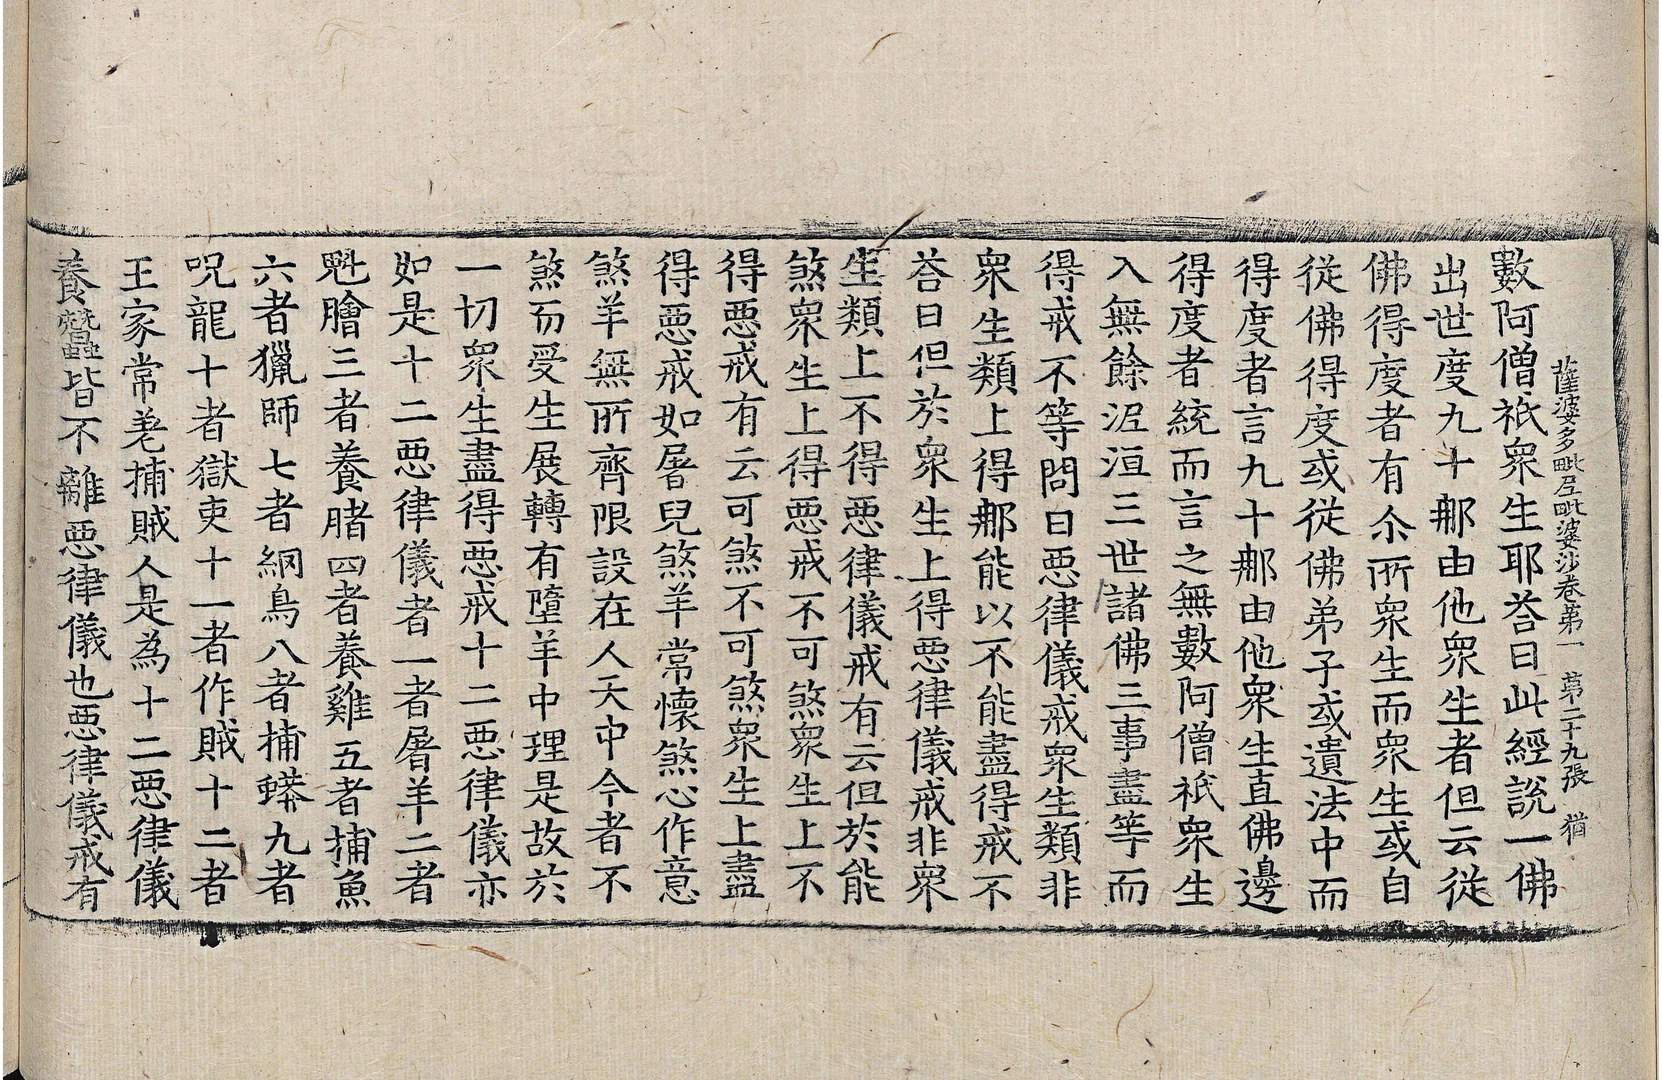 薩婆多毗尼毗婆沙卷第一　第二十九張　猶
數阿僧祇衆生耶荅曰此經說一佛
出世度九十那由他衆生者但云從
佛得度者有尒所衆生而衆生或自
從佛得度或從佛弟子或遺法中而
得度者言九十那由他衆生直佛邊
得度者統而言之無數阿僧祇衆生
入無餘泥洹三世諸佛三事盡等而
得戒不等問曰惡律儀戒衆生類非
衆生類上得那能以不能盡得戒不
荅曰但於衆生上得惡律儀戒非衆
生類上不得惡律儀戒有云但於能
煞衆生上得惡戒不可煞衆生上不
得惡戒有云可煞不可煞衆生上盡
得惡戒如屠兒煞羊常懷煞心作意
煞羊無所齊限設在人天中今者不
煞而受生展轉有墮羊中理是故於
一切衆生盡得惡戒十二惡律儀亦
如是十二惡律儀者一者屠羊二者
魁膾三者養賭四者養雞五者捕魚
六者獵師七者網鳥八者捕蟒九者
呪龍十者獄吏十一者作賊十二者
王家常差捕賊人是為十二惡律儀
養蠶皆不離惡律儀也惡律儀戒有